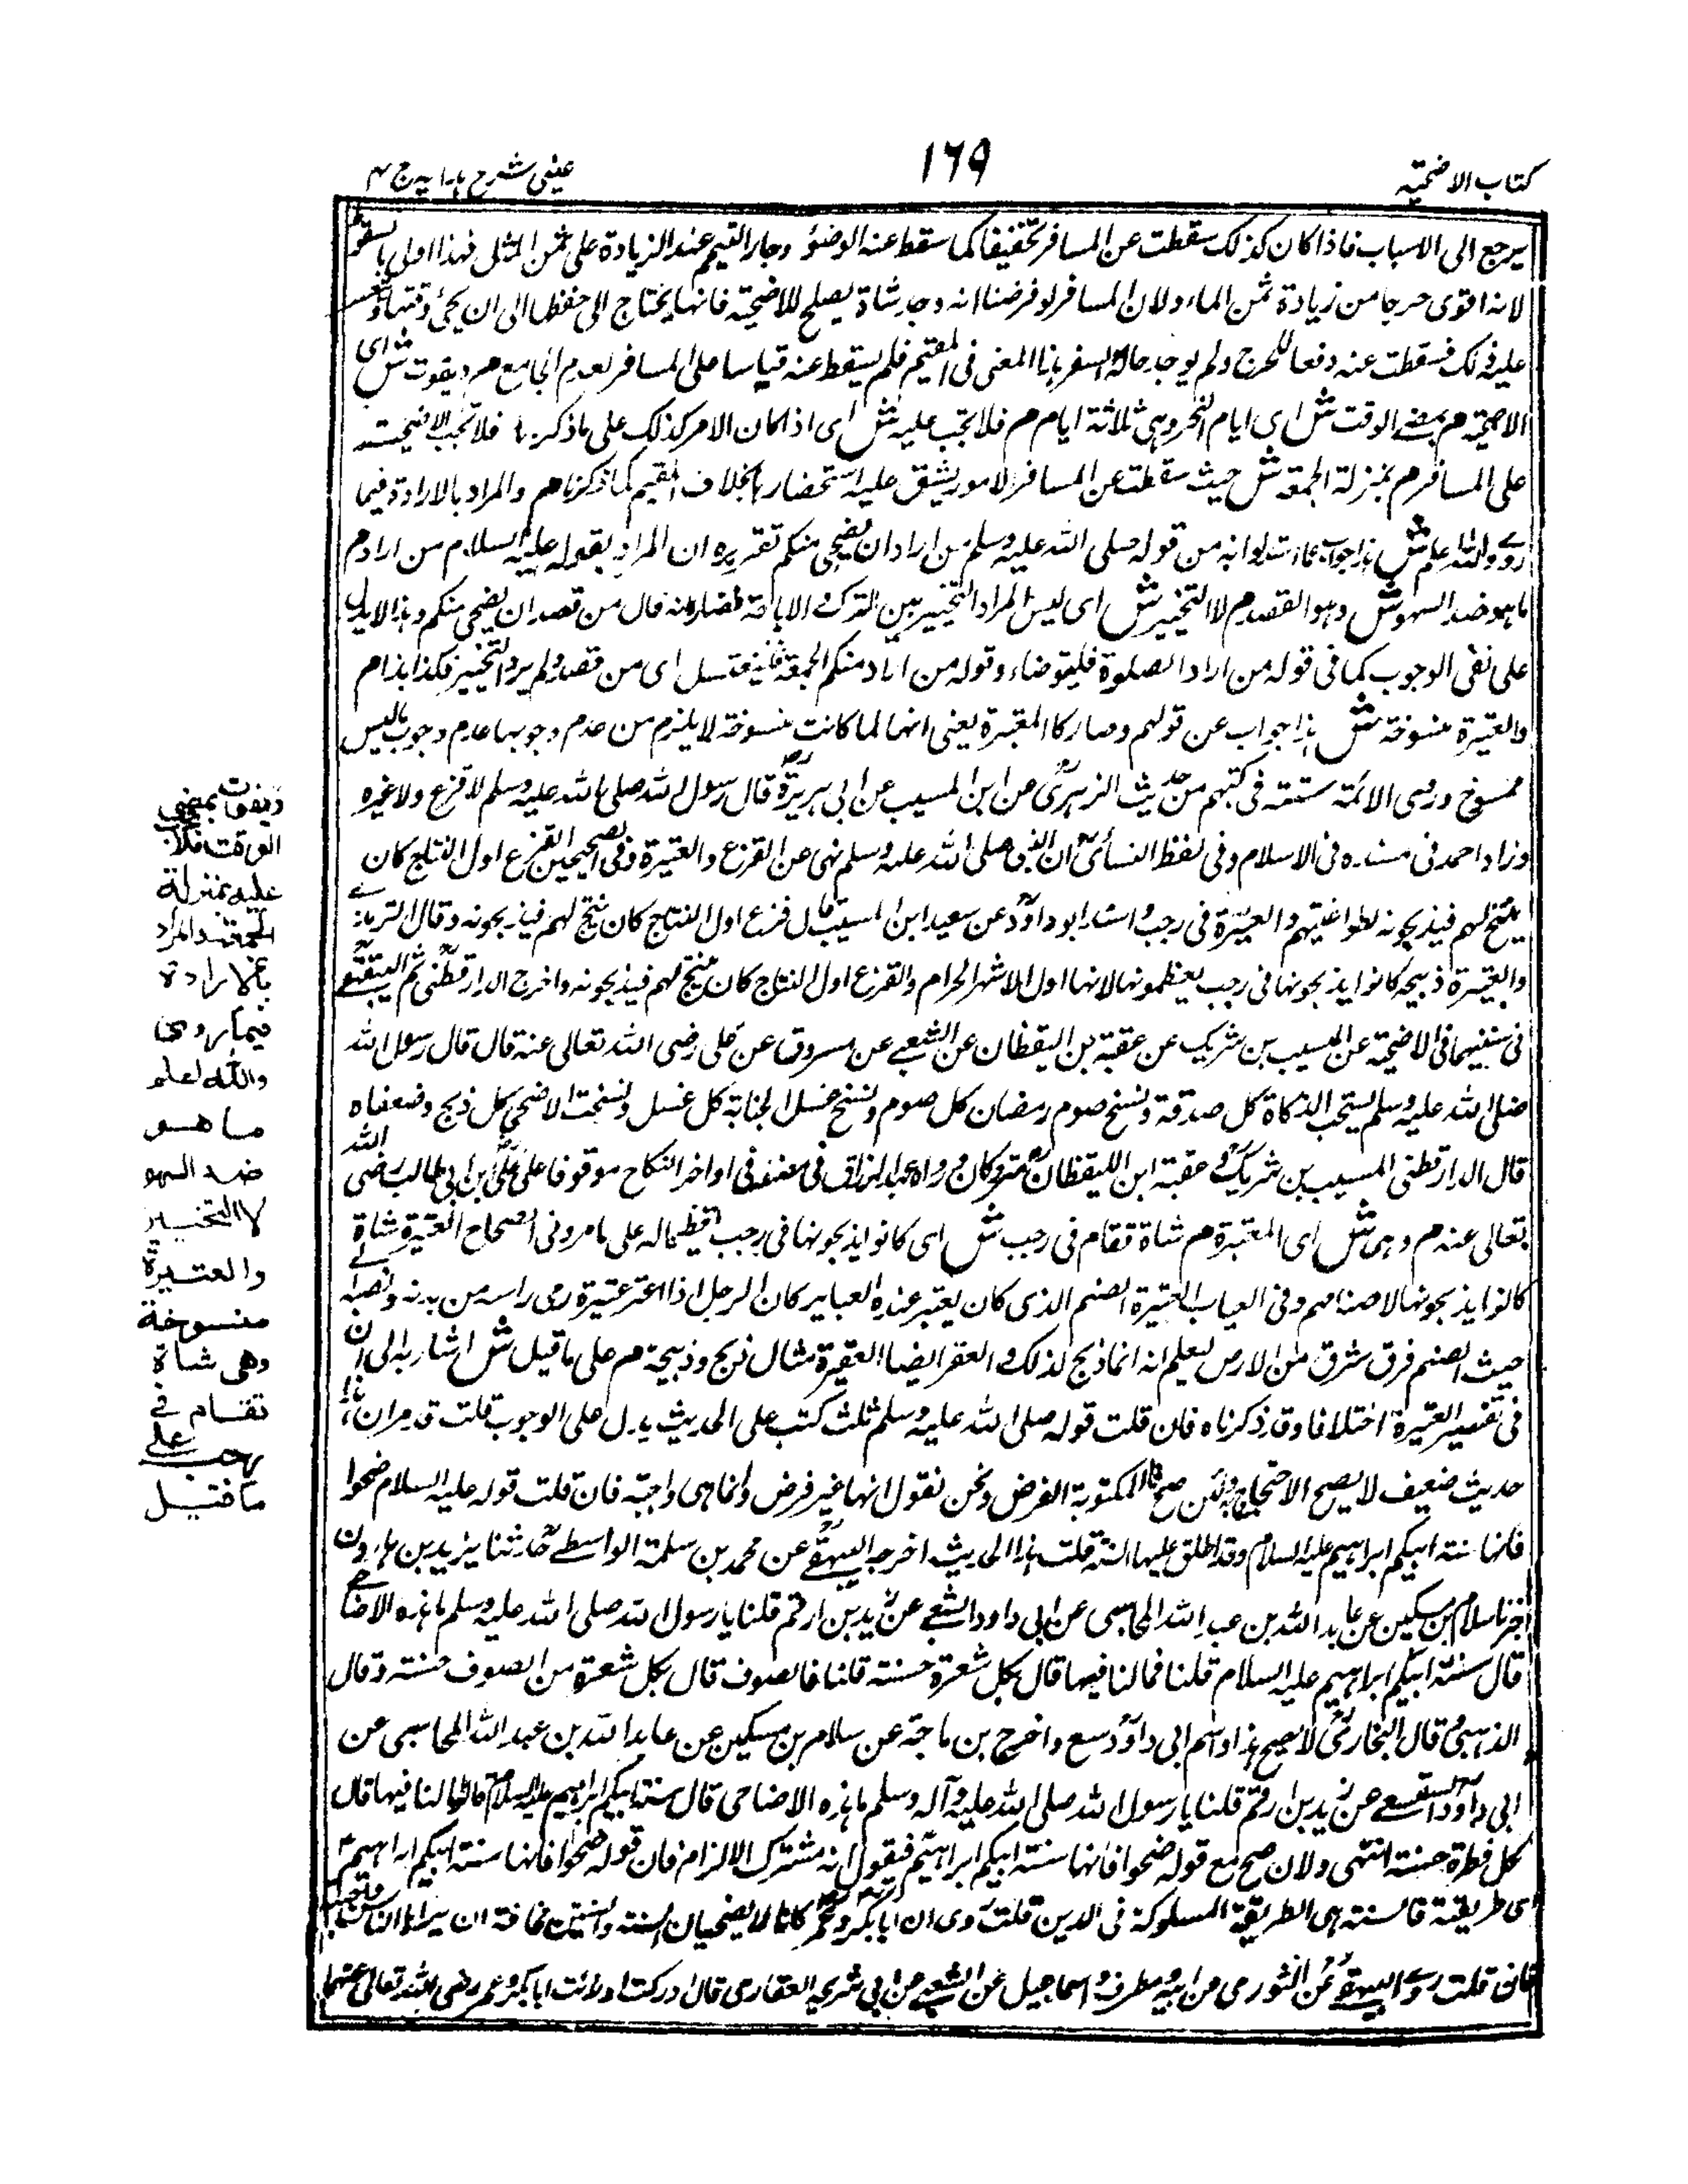 كتاب الاضحية
١٦٩
عينى شرح هدايه ج ٤
يرجع الى الاسباب فاذا كان كذلك سقطت عن المسافر تخفيفا كما سقط عنه الوضوء وجاز التيمم عند الزيادة على ثمن المثل فهذا اولى بالسقوط
لانه اقوى حرجا من زيادة ثمن الماء ولان المسافر لو فرضنا انه وجد شاة يصلح للاضحية فانها يحتاج الى حفظها الى ان يجئ وقتها
عليه ذلك فسقطت عنه دفعا للحرج ولم يوجد حالة السفر هذا المعنى فى المقيم فلم يسقط عنه قياسا على المسافر لعدم الجامع م ويفوت ش اى
الاضحية م بمضى الوقت ش اى ايام النحر وهى ثلاثة ايام م فلا تجب عليه ش اى اذا كان الامر كذلك على ما ذكرنا فلا تجب الاضحية
على المسافر م بمنزلة الجمعة ش حيث سقطت عن المسافر لامور يشق عليه استحضارها بخلاف المقيم كما ذكرنا م والمراد بالارادة فيما
روى والله اعلم ش هذا جواب عما استدلوا به من قوله صلى الله عليه وسلم من اراد ان يضحى منكم تقريره ان المراد بقوله عليه السلام من اراد م
ما هو ضد السهو ش وهو القصد م لا التخيير ش اى ليس المراد التخيير بين الترك والاباحة فصار كانه قال من قصد ان يضحى منكم وهذا لا يدل
على نفى الوجوب كما فى قوله من اراد الصلوة فليتوضاء وقوله من اراد منكم الجمعة فليغتسل اى من قصد ولم يرد التخيير فكذا هذا م
والعتيرة منسوخة ش هذا جواب عن قولهم وصار كالعتيرة يعنى انها لما كانت منسوخة لا يلزم من عدم وجوبها عدم وجوب ما ليس
بمنسوخ وروى الائمة ستته فى كتبهم من حديث الزهرى عن ابن المسيب عن ابى هريرة قال رسول الله صلى الله عليه وسلم لا فرع ولا عتيرة
وزاد احمد فى مسنده فى الاسلام وفى لفظ النسائى ان النبى صلى الله عليه وسلم نهى عن الفرع والعتيرة وفى الصحيحين الفرع اول النتاج كان
ينتج لهم فيذبحونه لطواغيتهم والعتيرة فى رجب واسند ابو داود عن سعيد ابن المسيب قال فرع اول النتاج كان ينتج لهم فيذبحونه وقال الترمذى
والعتيرة ذبيحة كانوا يذبحونها فى رجب يعظمونها لانها اول الاشهر الحرام والفرع اول النتاج كان ينتج لهم فيذبحونه واخرج الدارقطنى ثم البيهقى
فى سننيهما فى الاضحية عن المسيب بن شريك عن عقبة بن اليقظان عن الشعبى عن مسروق عن على رضى الله تعالى عنه قال قال رسول الله
صلى الله عليه وسلم نسخت الزكاة كل صدقة ونسخ صوم رمضان كل صوم ونسخ غسل الجنابة كل غسل ونسخت الاضحى كل ذبح وضعفاه
قال الدارقطنى المسيب بن شريك وعقبة ابن اليقظان متروكان ورواه عبد الرزاق فى مصنفه فى اواخر النكاح موقوفا على على بن ابى طالب رضى الله
تعالى عنه م وهى ش اى العتيرة م شاة تقام فى رجب ش اى كانوا يذبحونها فى رجب تعظيما له على ما مر وفى الصحاح العتيرة شاة
كانوا يذبحونها لاصنامهم وفى العباب العتيرة الصنم الذى كان يعتر عنده العباير كان الرجل اذا اعتر عتيرة رمى راسه من بدنه ونصبه الى
حيث الصنم فرق شرق من الارض ليعلم انه انما ذبح لذلك والعقر ايضا العقيرة مثال ذبح وذبيحة م على ما قيل ش اشار به الى ان
فى تفسير العتيرة اختلافا وقد ذكرناه فان قلت قوله صلى الله عليه وسلم ثلث كتب على الحديث يدل على الوجوب قلت قد مر ان هذا
حديث ضعيف لا يصح الاحتجاج به ولئن صح فالمكتوبة الفرض ونحن نقول انها غير فرض وانما هى واجبة فان قلت قوله عليه السلام ضحوا
فانها سنة ابيكم ابراهيم عليه السلام وقد اطلق عليها السنة قلت هذا الحديث اخرجه البيهقى عن محمد بن سلمة الواسطى حدثنا يزيد بن هارون
اخبرنا سلام بن مسكين عن عايد الله بن عبد الله المجاسبى عن ابى داود الشعبى عن زيد بن ارقم قلنا يا رسول الله صلى الله عليه وسلم ما هذه الاضاحى
قال سنة ابيكم ابراهيم عليه السلام قلنا فما لنا فيها قال بكل شعرة حسنة قلنا فالصوف قال بكل شعرة من الصوف حسنة وقال
الذهبى قال البخارى لا يصح هذا واسم ابى داود سع واخرج بن ماجة عن سلام بن مسكين عن عايد الله بن عبد الله المحاسبى عن
ابى داود السقسعى عن زيد بن ارقم قلنا يا رسول الله صلى الله عليه وآله وسلم ما هذه الاضاحى قال سنة ابيكم ابراهيم عليه السلام قالوا ما لنا فيها قال
بكل قطرة حسنة انتهى ولان صح مع قوله ضحوا فانها سنة ابيكم ابراهيم فيقول انه مشترك الالزام فان قوله ضحوا فانها سنة ابيكم ابراهيم
اى طريقته فالسنة هى الطريقة المسلوكة فى الدين قلت روى ان ابا بكر وعمر كانا لا يضحيان السنة والسنتين مخافة ان يراها الناس واجبة
فان قلت روى البيهقى عن الثورى عن ابيه ومطرف واسماعيل عن الشعبى عن ابى شريحة الغفارى قال ادركت او رايت ابا بكر وعمر رضى الله تعالى عنهما
ويفوت بمضى
الوقت فلا تجب
عليه بمنزلة
الجمعة والمراد
بالارادة
فيما روى
والله اعلم
ما هو
ضد السهو
لا التخيير
والعتيرة
منسوخة
وهى شاة
تقام فى
رجب على
ما قيل